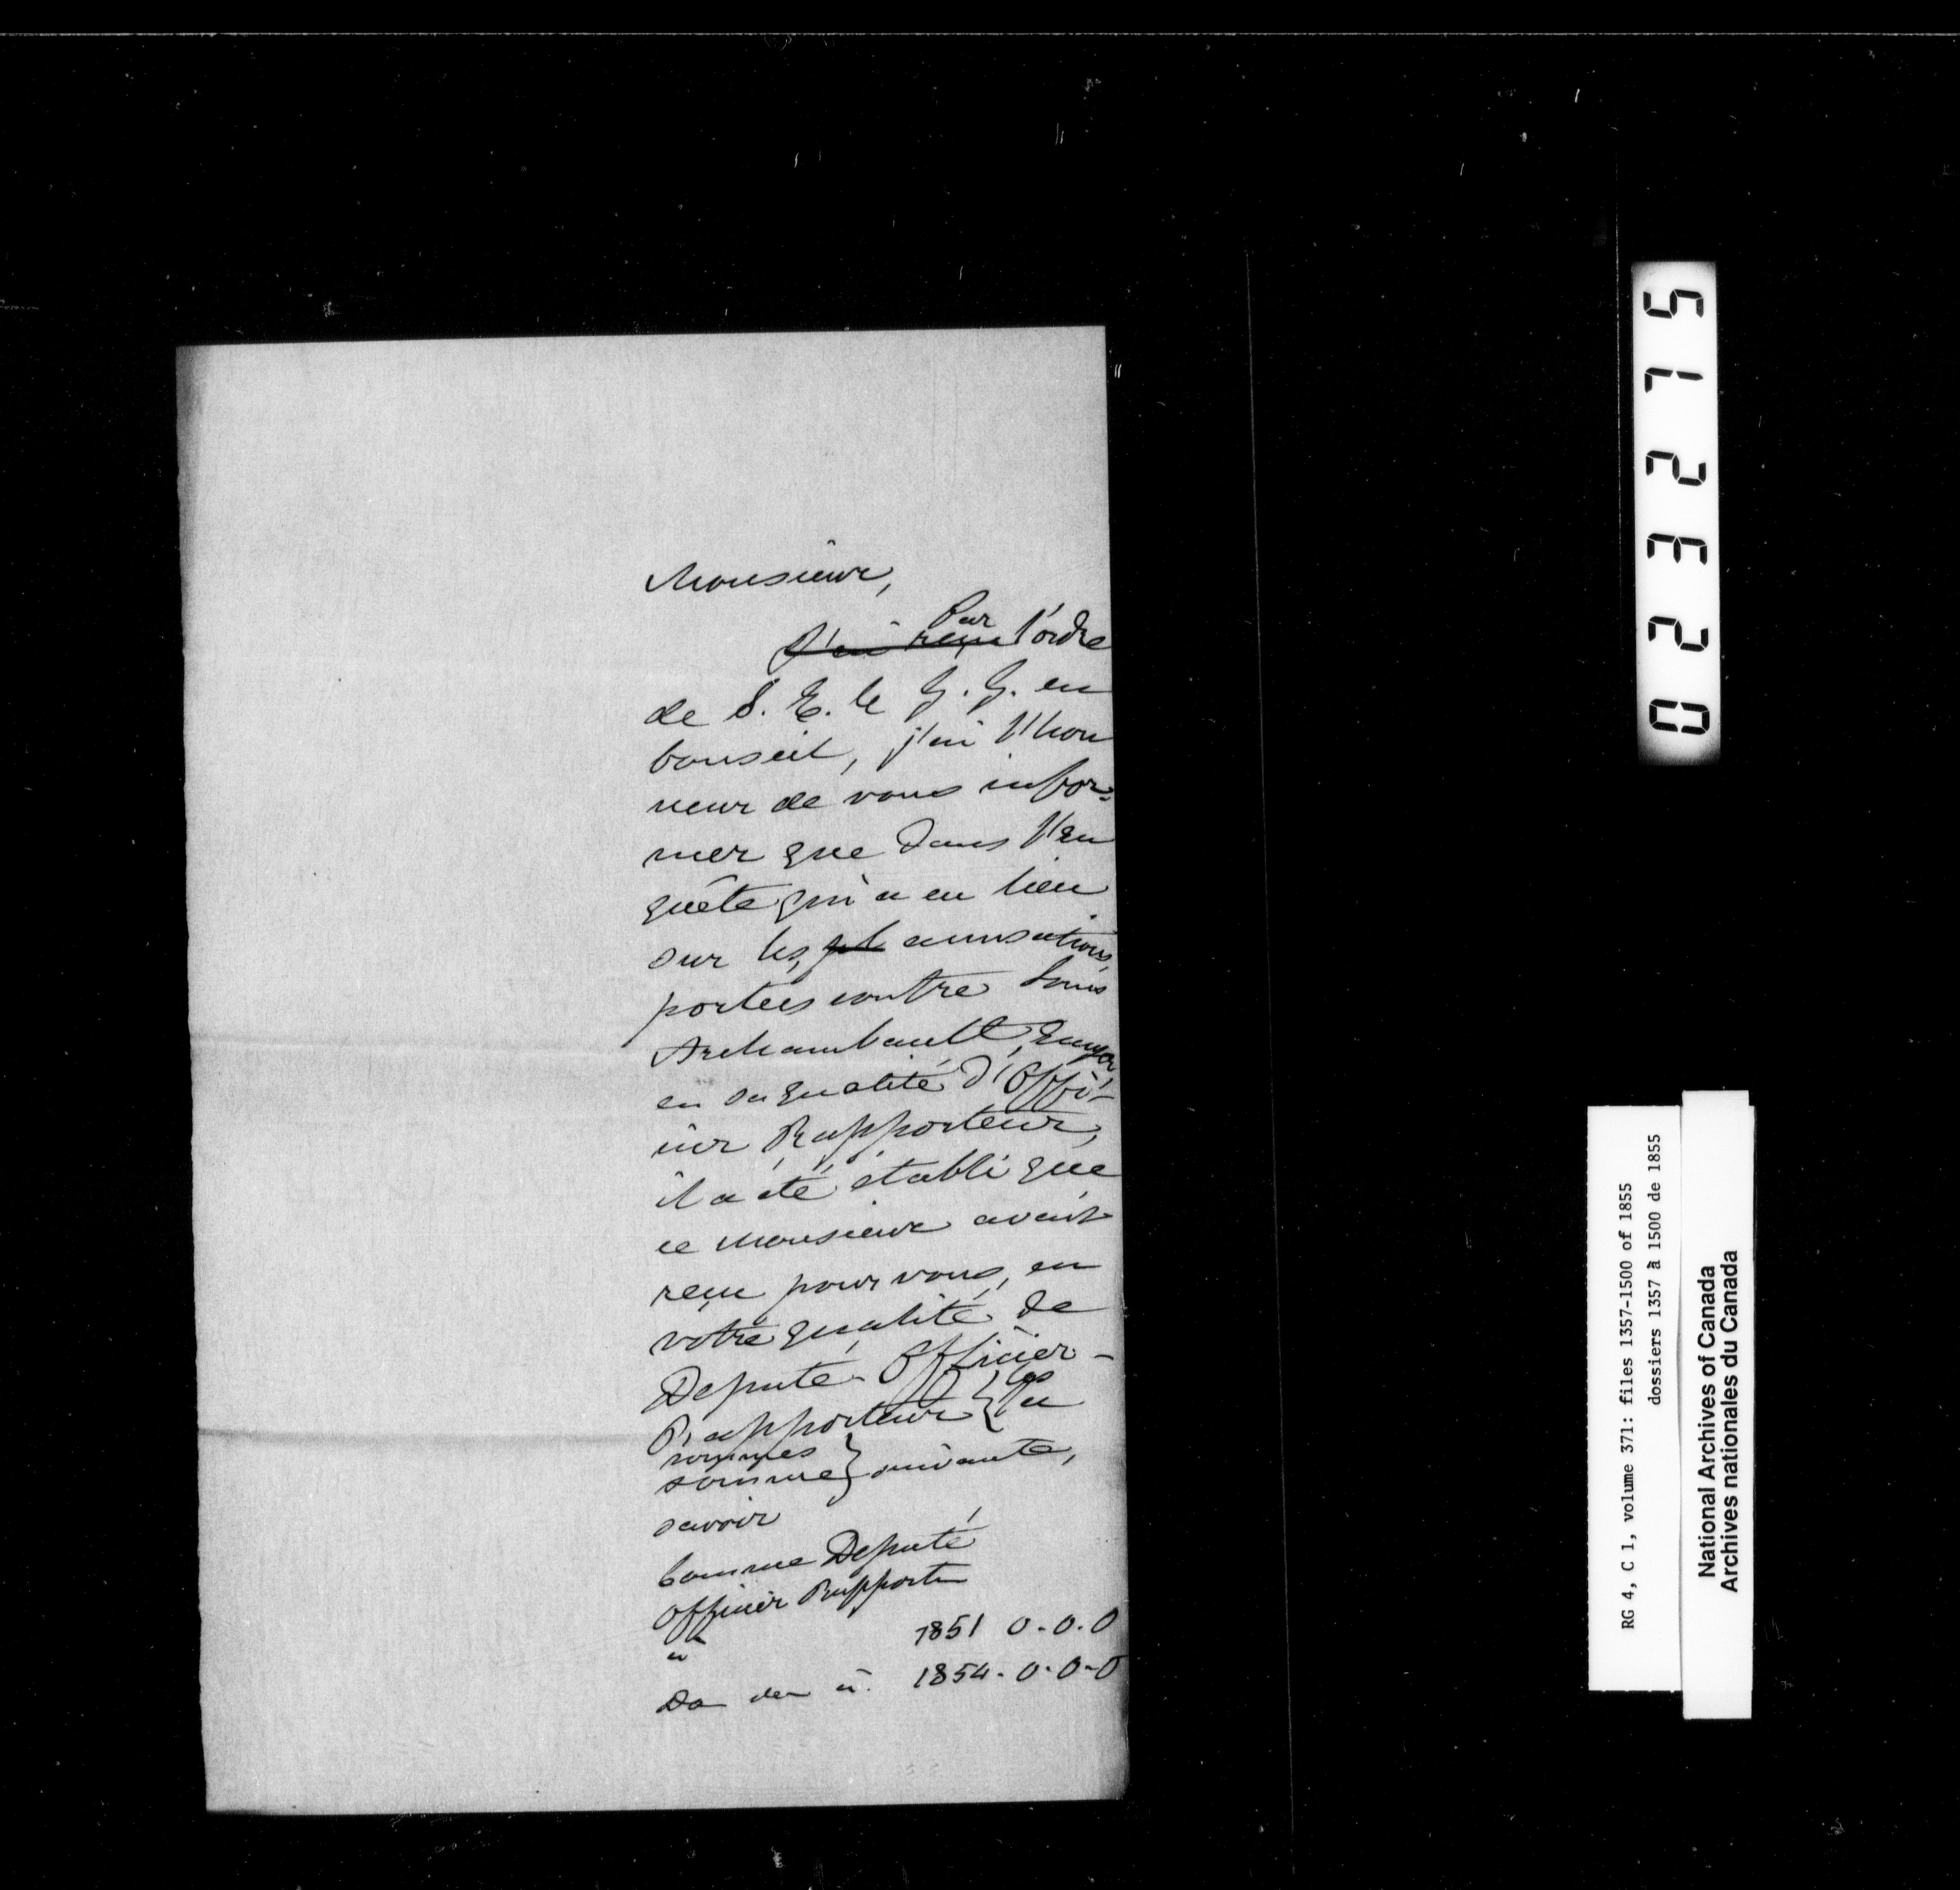 Monsieur,
Par
J'ai reçu l'ordre
de S. E. le G. G. en
Conseil, j'ai l'hon
neur de vous infor-
mer que dans l'en
quête qui a eu lieu
sur les accusations
portées contre Louis
Archambault, Ecuyer
en sa qualité d'Offi-
cier Rapporteur,
il a été établi que
ce Monsieur avait
reçu pour vous, en
votre qualité de
Député-Officier-
Rapporteur { les
la
sommes
somme } suivante,
savoir
Comme Député
Officier Rapporteur
à 1851 0.0.0
Do do à. 1854. 0.0.0
022L15
RG 4, C 1, volume 371: files 1357-1500 of 1855
dossiers 1357 à 1500 de 1855
National Archives of Canada
Archives nationales du Canada